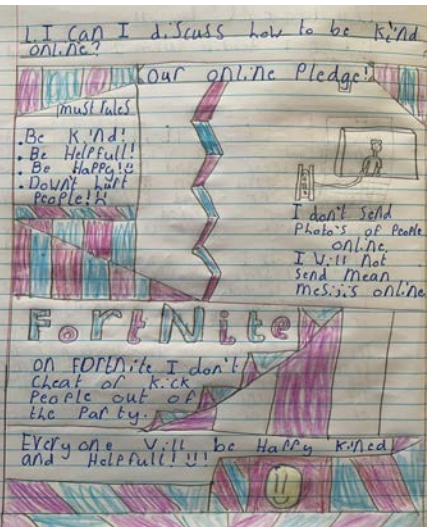 L.I Can I discuss how to be kind
online?
Our online Pledge!
must rules
. Be Kind!
. Be Helpfull!
. Be Happy!
. Down't hurt
People!
I don't send
Photo's of People
online,
I will not
send mean
mesijis online
FortNite
on FORtnite I don't
Cheat or Kick
People out of
the Party.
Everyone will be Happy Kined
and Helpfull!!!